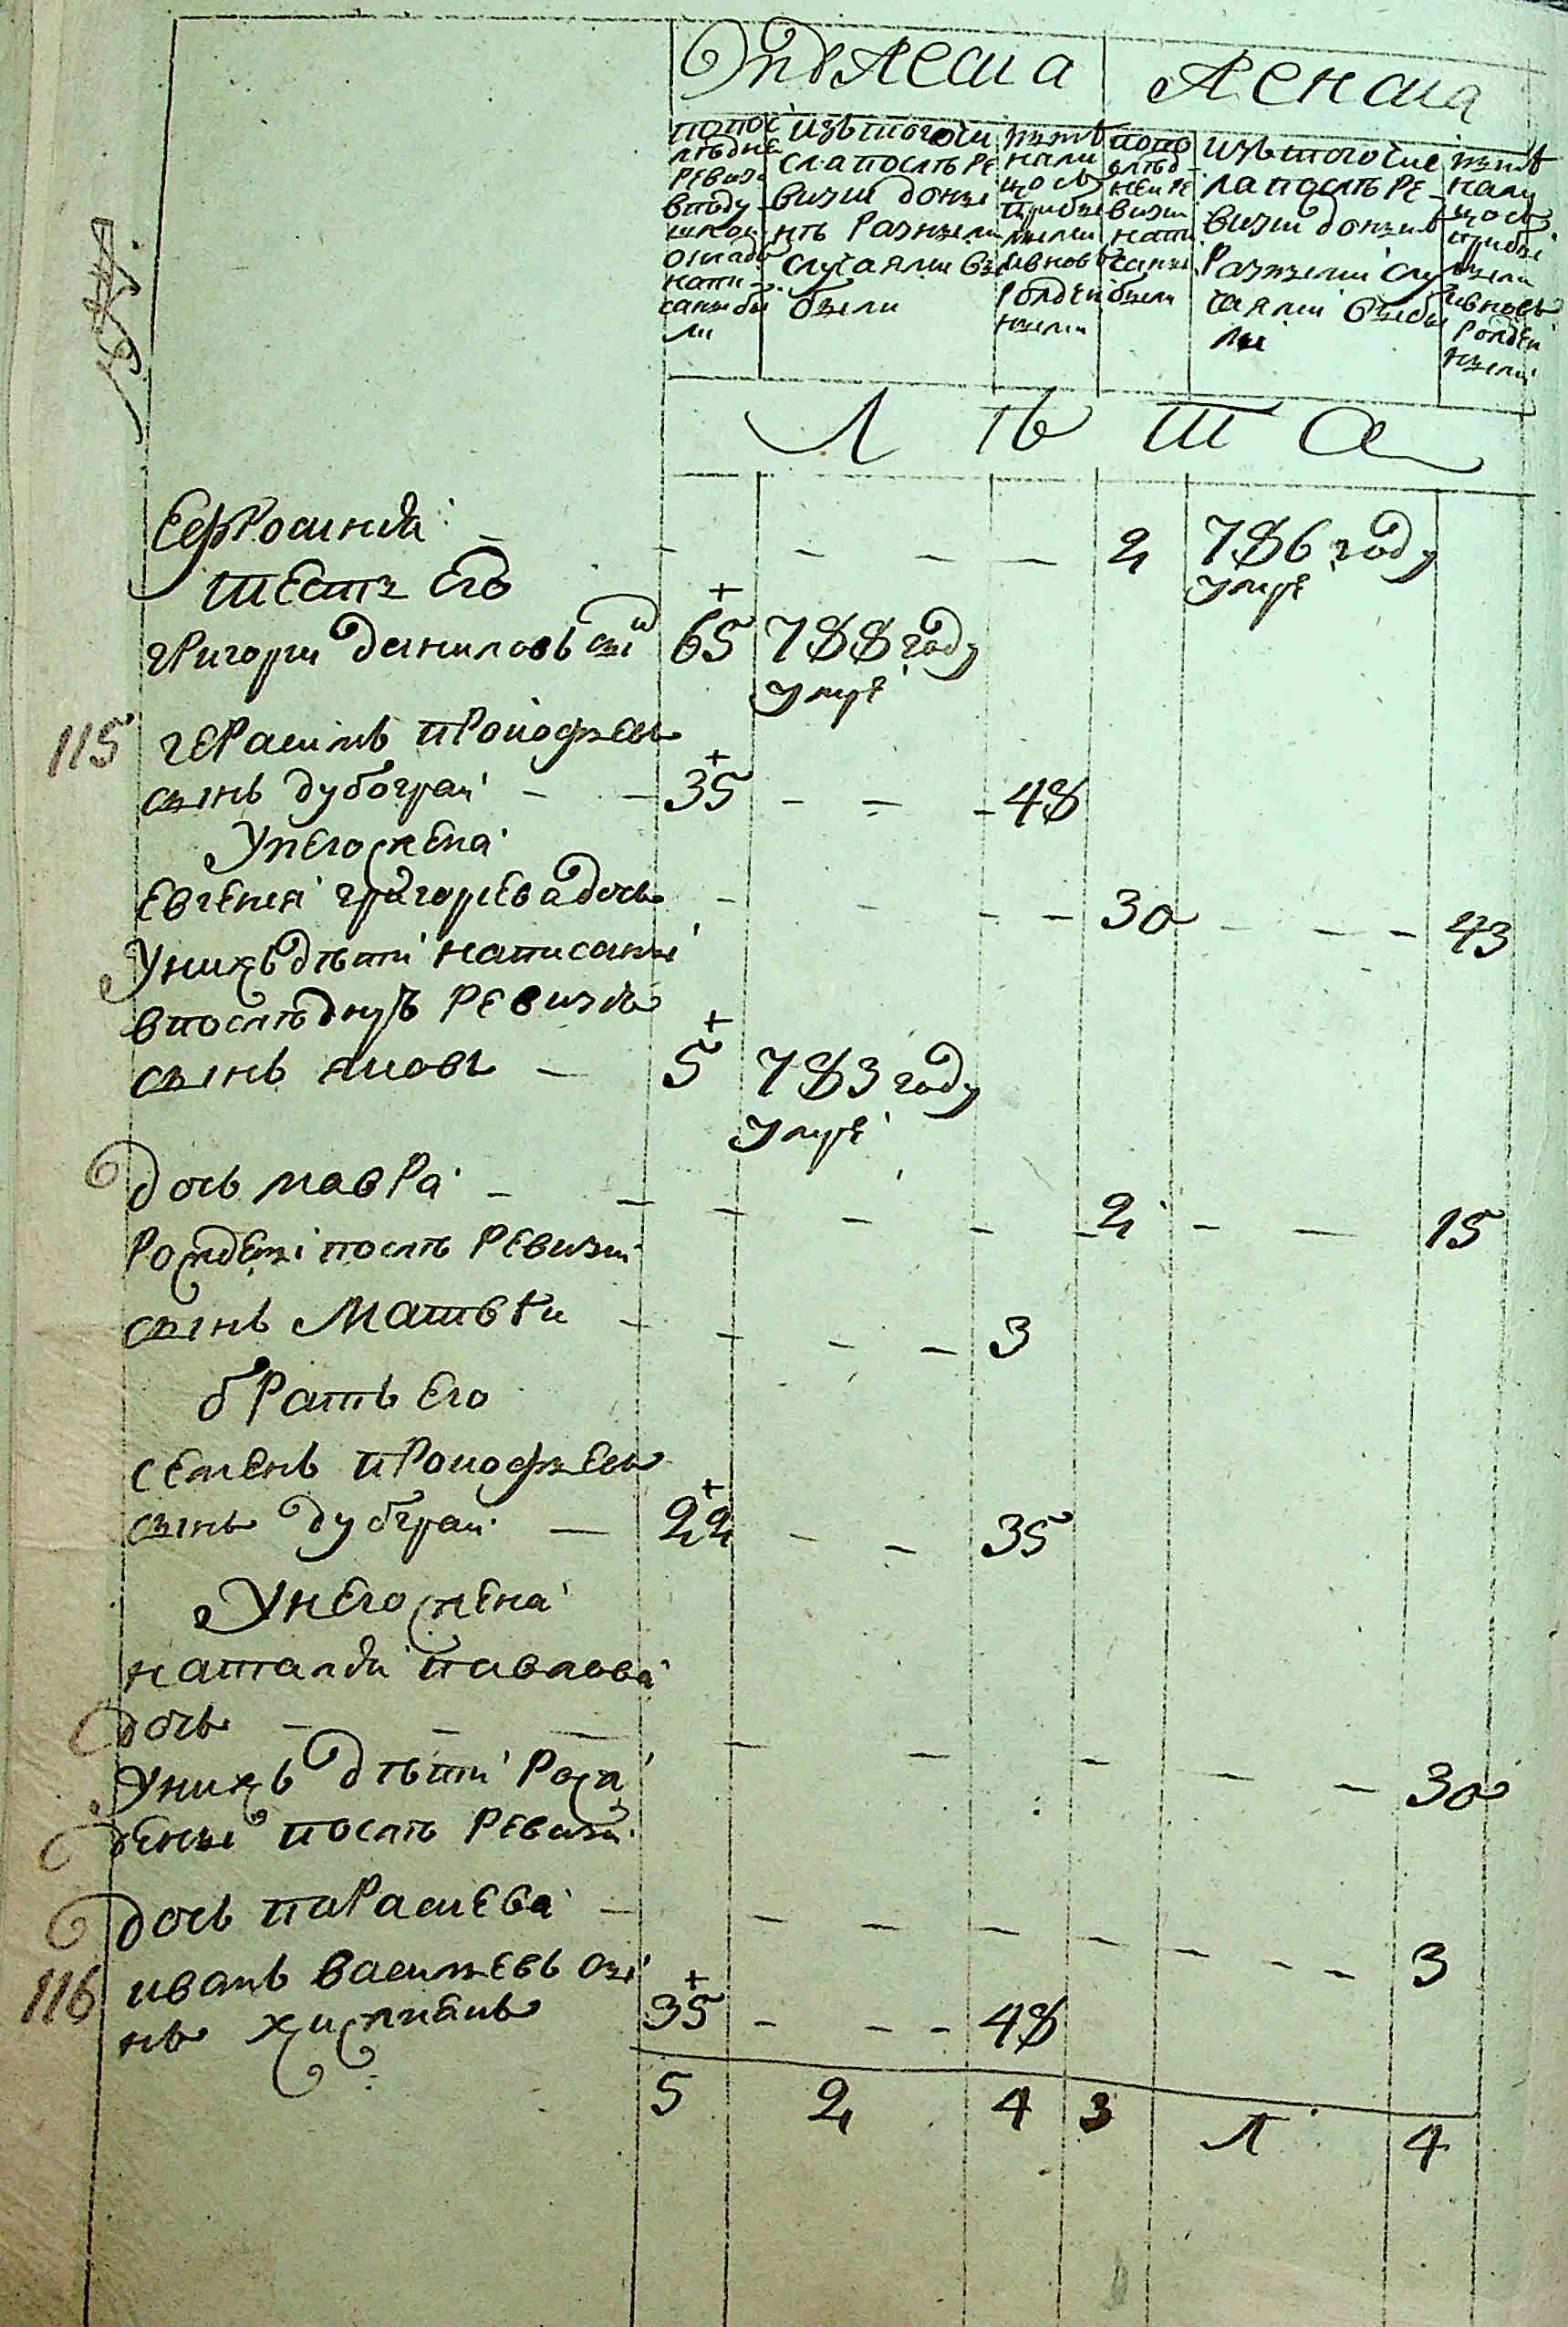 Мужеска Женска
попос
лѣдне
ревизи
вподу
шном
окладе
напи
саны бы
ли
изътогочи
сла послѣ ре
визии донии
нѣ разными
случаями вы
были
нынѣ
нали
цось
прибы
лыми
ивновь
рожден
ными
попо
слѣд
ней ре
визии
напи
саны
были
изътогочис
ла послѣ ре
визии донинѣ
разными слу
чаями выбы
ли
нынѣ
нали
цось
прибы
лыми
ивновь
рожден
ными
Л ѣ т а
Ефросинія - - - - - 2 786 году
умре
тесть его
григори даниловъ сы 65 788 году
умре
115 герасимъ прокофьевъ
сынъ дубограй - - 35 - - - 48
Унего жена
евгения григорьева дочь - - - - 30 - - - 43
Унихъ дѣти написаны
впослѣднуѣ ревизіѣ
сынъ яковъ - 5 783 году
умре
дочь мавра - - - - - - 2 - - 15
рождены послѣ ревизии
сынъ Матвѣи - - - - 3
братъ его
семенъ прокофьевъ
сынъ дубграй - 22 - - 35
Унего жена
наталія павлова
дочь - - - - - - - - 30
Унихъ дѣти рож
дены послѣ ревизи
дочь параскева - - - - - - - - 3
116 иванъ васильевъ сы
нъ 35 - - - 48
5 2 4 3 1 4